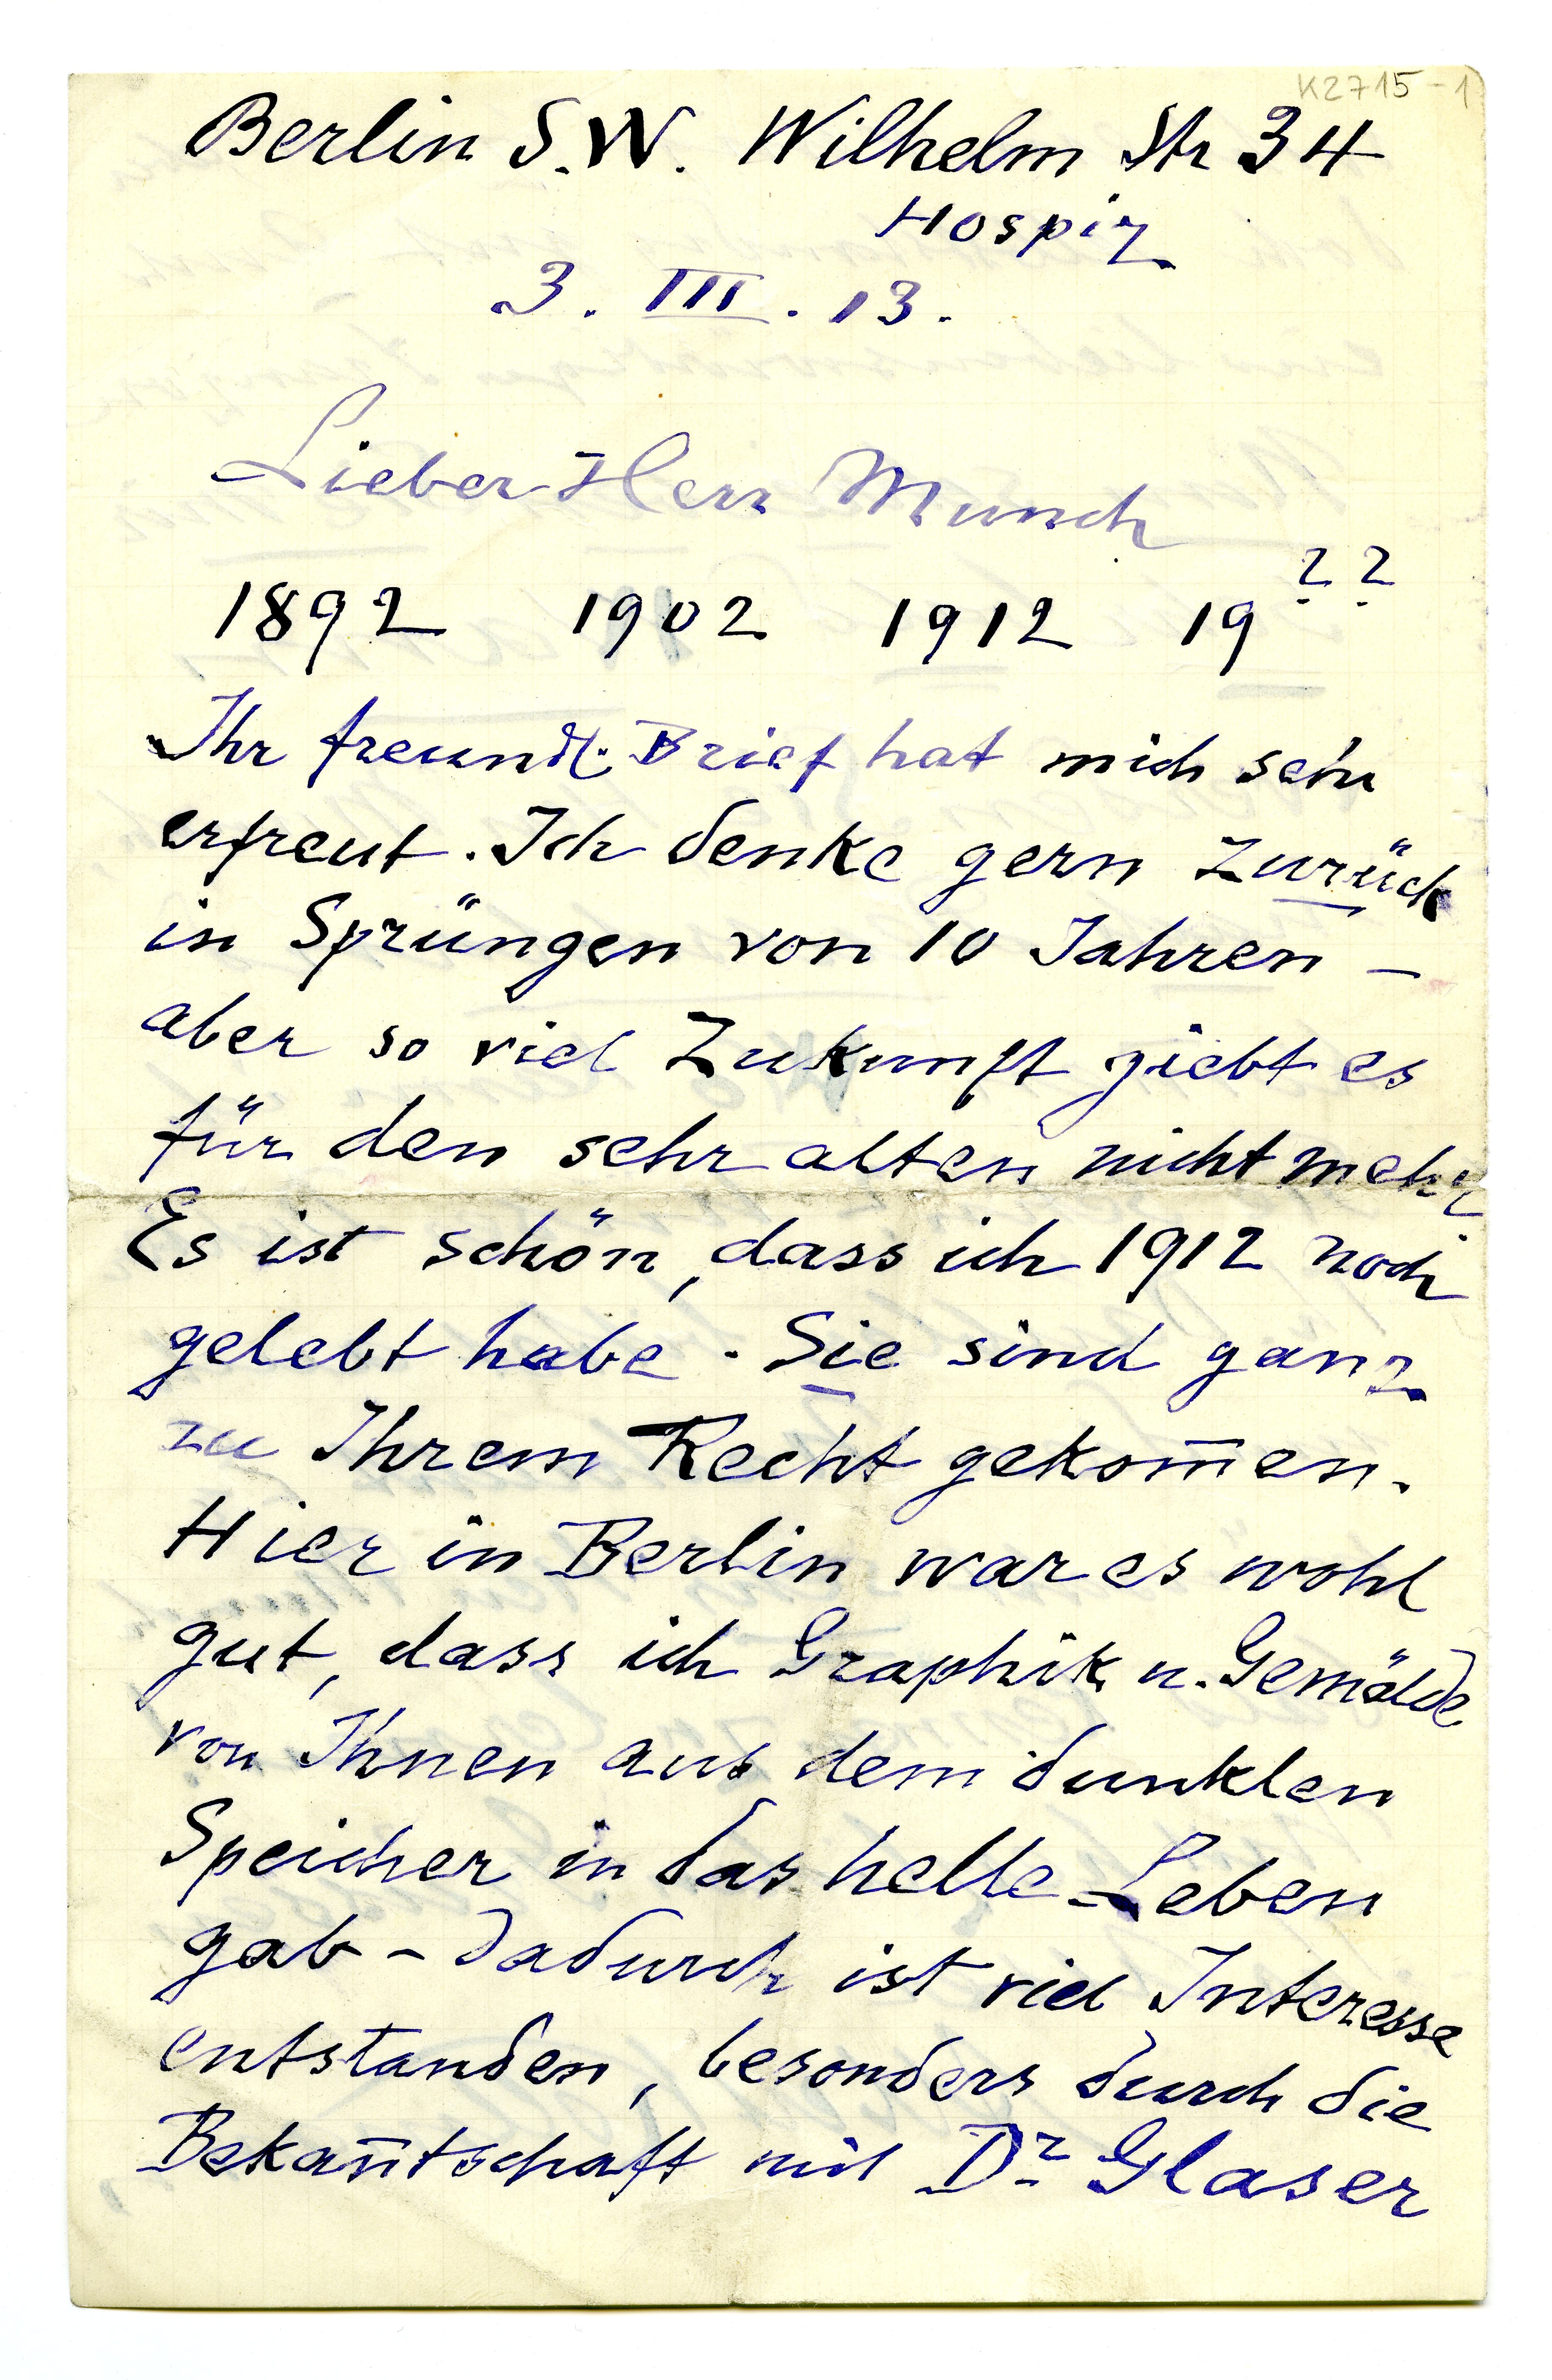 K2715-1
Berlin S.W. Wilhelm Str 34
Hospiz
3. III. 13.
Lieber Herr Munch
1892 1902 1912 19??
Ihr freundl. Brief hat mich sehr
erfreut. Ich denke gern zurück
in Sprüngen von 10 Jahren –
aber so viel Zukunft giebt es
für den sehr alten nicht mehr
Es ist schön, dass ich 1912 noch
gelebt habe. Sie sind ganz
zu Ihrem Recht gekom̅en.
Hier in Berlin war es wohl
gut, dass ich Graphik u. Gemälde
von Ihnen aus dem dunklen
Speicher in das helle Leben
gab – dadurch ist viel Interesse
entstanden, besonders durch die
Bekan̅tschaft mit Dr Glaser